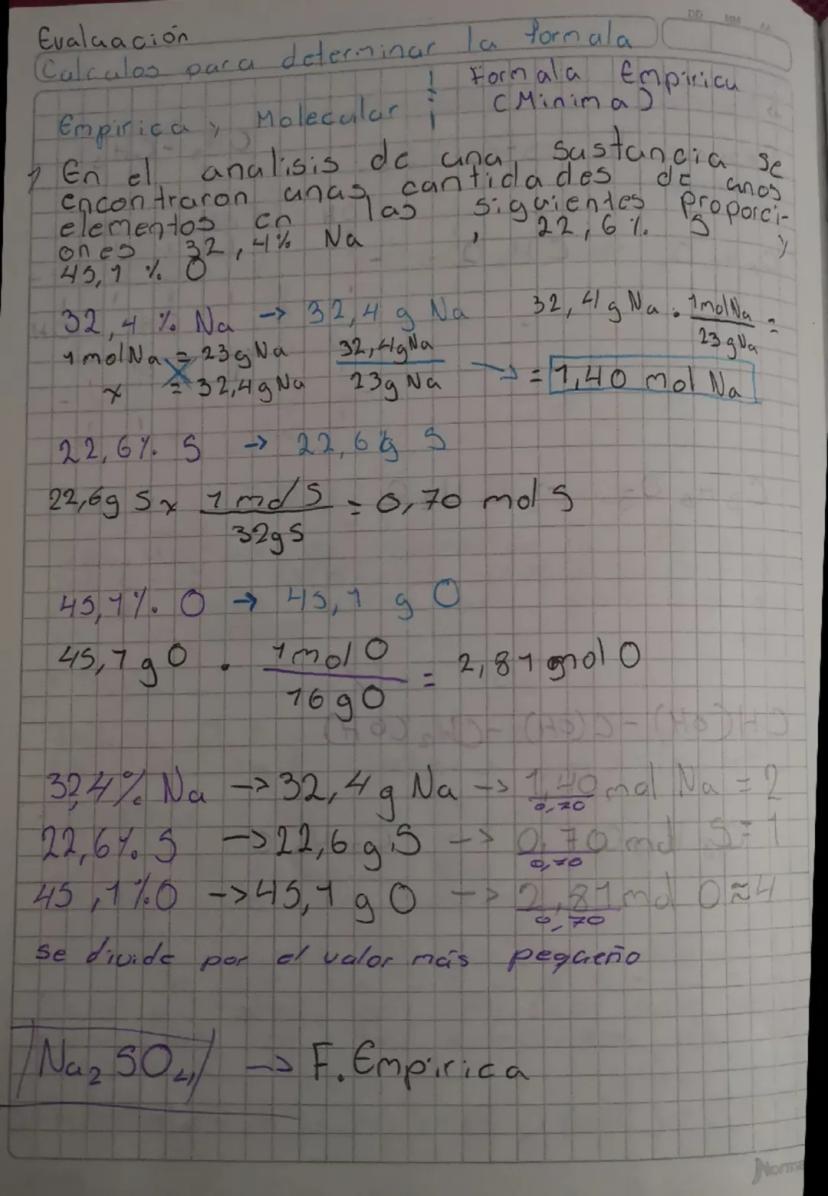 DD MM AA
Evaluación
Calculos para determinar la formula
Empirica y Molecular : Formula Empirica (Minima)
1 En el analisis de una sustancia se
encontraron unas cantidades de unos
elementos en las siguientes proporci-
ones 32,4% Na , 22,6% S ,
45,1 % O
32,4 % Na → 32,4 g Na 32,4 g Na . 1molNa / 23gNa =
1molNa = 23gNa 32,4gNa / 23g Na → = 1,40 mol Na
x = 32,4gNa
22,6% S → 22,6g S
22,6g S x 1 mol S / 32gS = 0,70 mol S
45,1% O → 45,1 g O
45,1 g O . 1mol O / 16 gO = 2,81 mol O
32,4% Na → 32,4 g Na → 1,40 / 0,70 mol Na = 2
22,6% S → 22,6 g S → 0,70 / 0,70 mol S = 1
45,1%O → 45,1 g O → 2,81 / 0,70 mol O ≈ 4
se divide por el valor más pequeño
Na₂SO₄ → F. Empirica
Norma